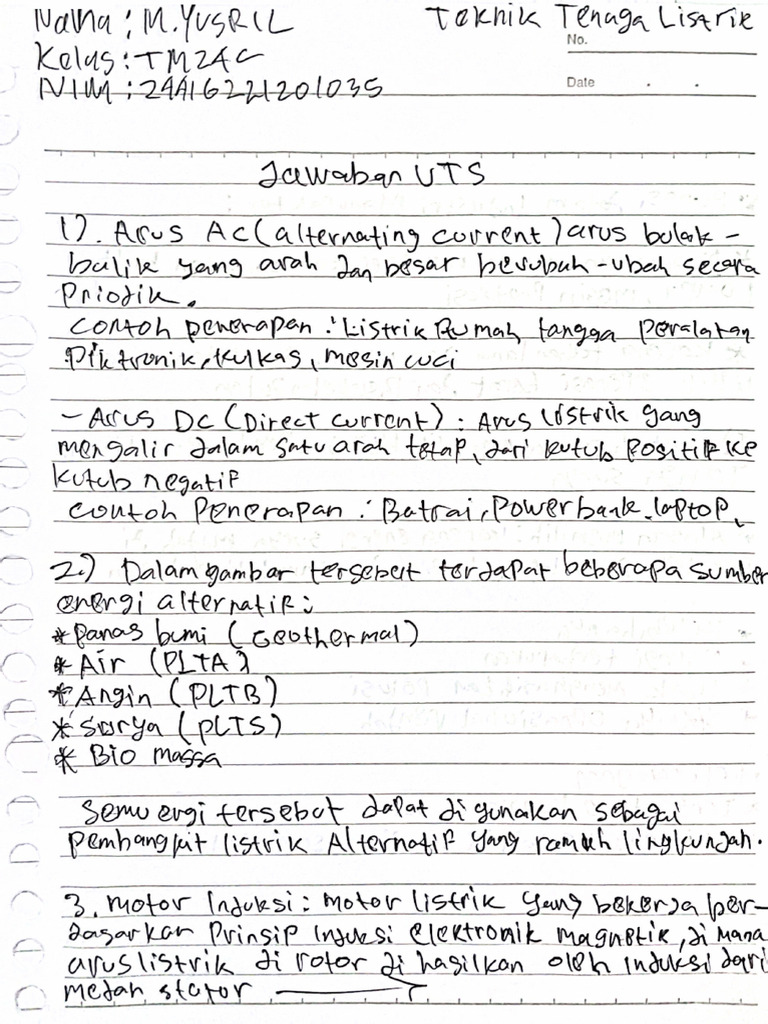 Nama : M. YUSRIL Teknik Tenaga Listrik
No.
Kelas : TM24C
NIM : 24416221201035
Date . .
Jawaban UTS
1). Arus AC (alternating current) arus bolak -
balik yang arah dan besar berubah - ubah secara
Priodik.
contoh penerapan : Listrik Rumah tangga peralatan
Plktronik, kulkas, mesin cuci
- Arus DC (Direct current) : Arus listrik yang
mengalir dalam satu arah tetap, dari kutub Positif ke
kutub negatif
contoh Penerapan : Batrai, Powerbank, laptop,
2.) Dalam gambar tersebut terdapat beberapa sumber
energi alternatif :
* Panas bumi (Geothermal)
* Air (PLTA)
* Angin (PLTB)
* Surya (PLTS)
* Bio massa
Semu ergi tersebut dapat di gunakan sebagai
Pembangkit listrik Alternatif yang ramah lingkungah.
3. motor Induksi : motor listrik yang bekerja ber-
dasarkan Prinsip Induksi elektronik magnetik, di mana
arus listrik di rotor di hasilkan oleh Induksi dari
medan stator